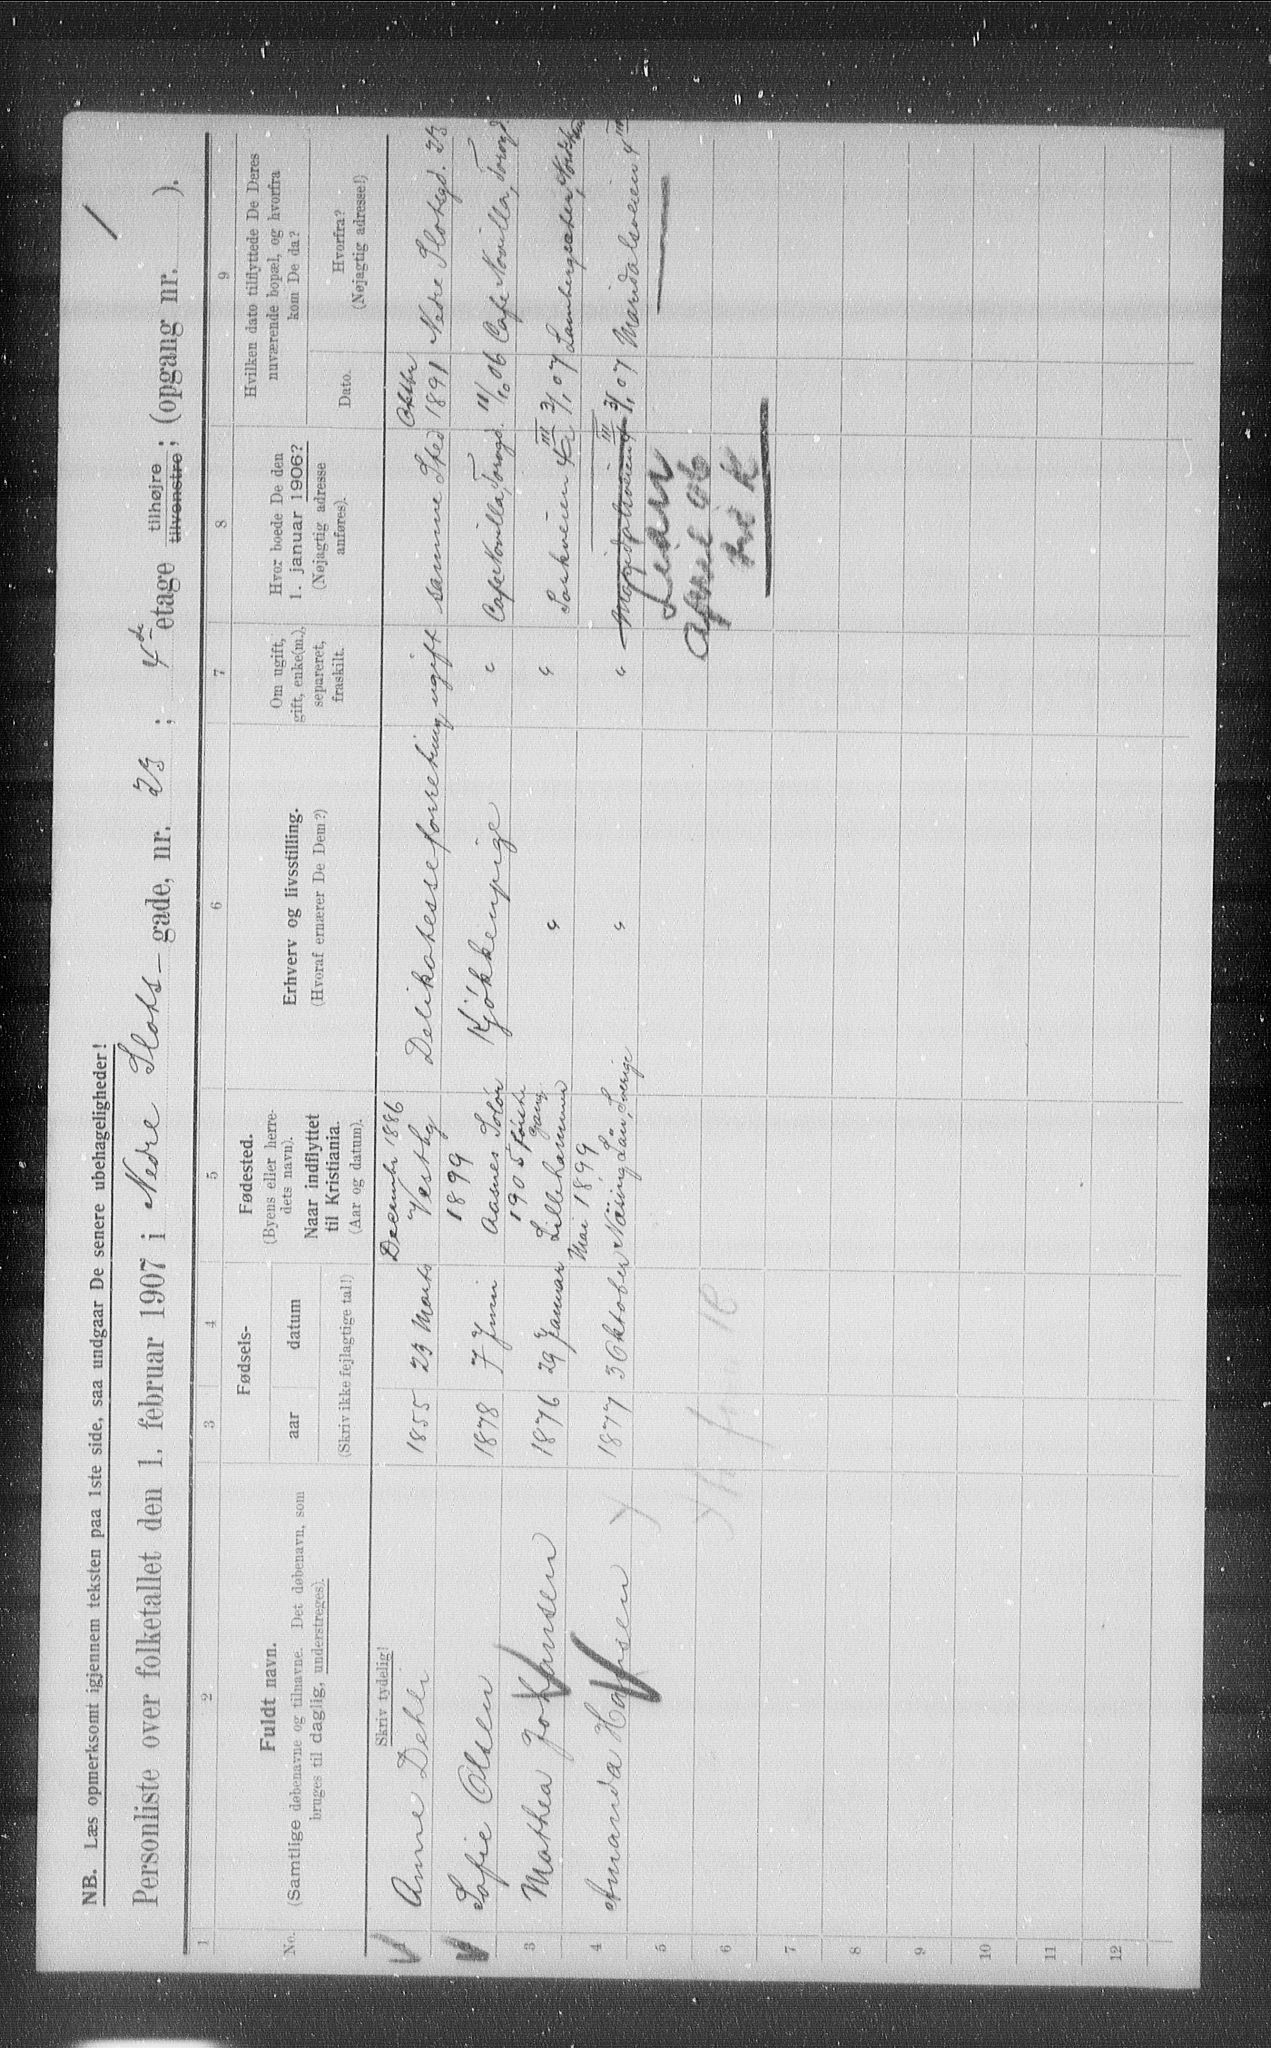 NB. Læs opmerksomt igjennem teksten paa 1ste side, saa undgaar De senere ubehageligheder!
Personliste over folketallet den 1. februar 1907 i Nedre Slots-gade, nr. 23; 4de etage tilhøjre tilvenstre; (opgang nr. ).
1 2 3 4 5 6 7 8 9
No.
Fuldt navn.
(Samtlige døbenavne og tilnavne. Det døbenavn, som
bruges til daglig, understreges).
Fødsels-
aar datum
(Skriv ikke fejlagtige tal!)
Fødested.
(Byens eller herre-
dets navn).
Naar indflyttet
til Kristiania.
(Aar og datum).
Erhverv og livsstilling.
(Hvoraf ernærer De Dem?)
Om ugift,
gift, enke(m.),
separeret,
fraskilt.
Hvor boede De den
1. januar 1906?
(Nøjagtig adresse
anføres).
Hvilken dato tilflyttede De Deres
nuværende bopæl, og hvorfra
kom De da?
Dato.
Hvorfra?
(Nøjagtig adresse!)
Skriv tydelig!
December 1886 Oktbr
1 Anne Dehli 1855 23 Marts Vestby Delikatesseforretning ugift samme Sted 1891 Nedre Slotsgd. 23
1899
2 Sofie Olsen 1878 7 Juni Aasnes Solør Kjøkkenpige " Cafe Norvilla, Torvgd. 11/10 06 Cafe Norvilla, Torvgd.
1905 første Gang
3 Mathea Johansen 1876 29 Januar Lillehammer " " 4 III 3/1 07
Mai 1899
4 Amanda Hansen 1877 3 Oktober Län, Sverige " " Maridalsveien 4 III 3/1 07 Maridalsveien 4 III
5
6
7
8
9
10
11
12